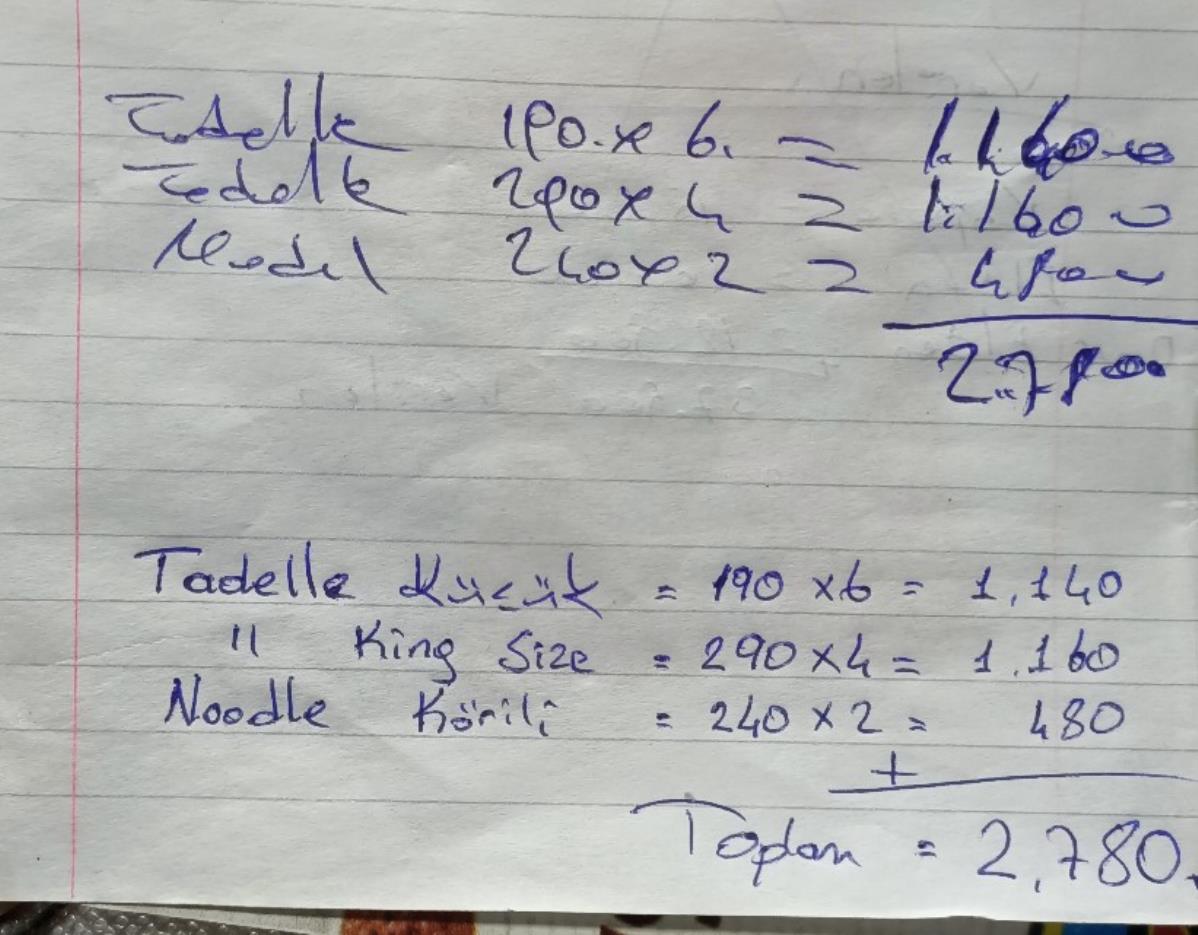 Tadelle 190 x 6 =
Tadelle 290 x 4 = 1.160
240 x 2 = 480
2.780
Tadelle Küçük = 190 x 6 = 1.140
" King Size = 290 x 4 = 1.160
Noodle Körili = 240 x 2 = 480
+
Toplam = 2.780